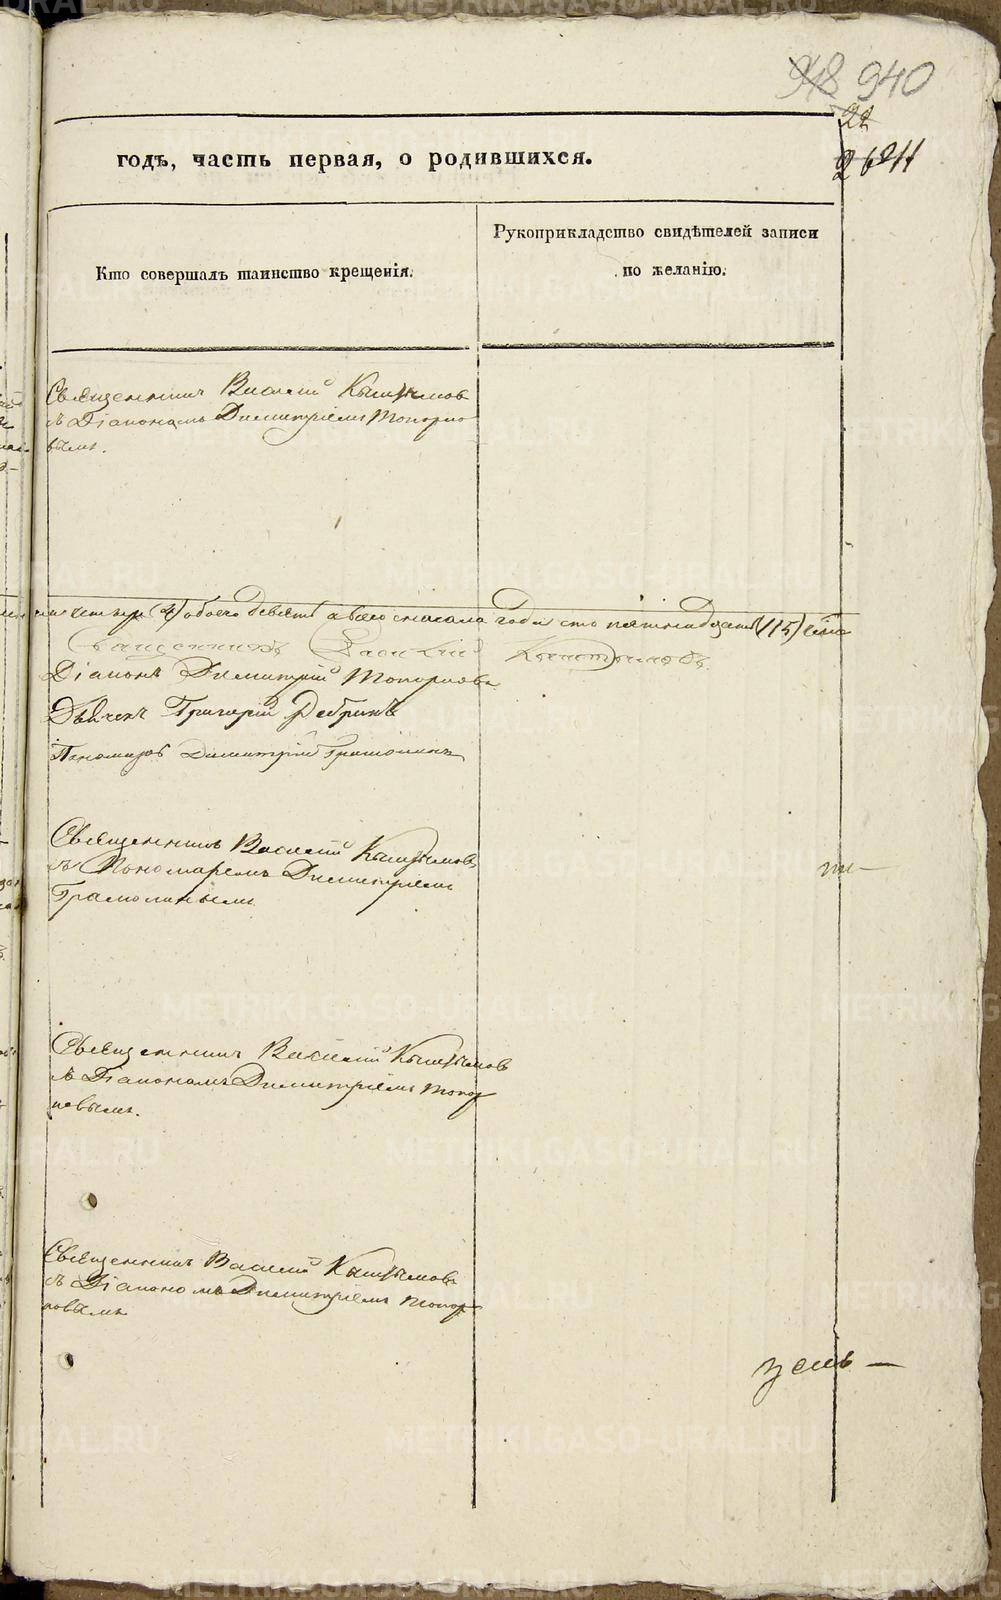 940
годъ, часть первая, о родившихся.
Кто совершалъ таинство крещенія.
Рукоприкладство свидѣтелей записи
по желанію.
Священникъ Василій Кыштымов
съ Діакономъ Димитріемъ Топорно
вымъ.
четыре (4) обоего девять а всего сначала года сто пятнадцать (115)
Священникъ Василій Кыштымовъ
Діаконъ Димитрій Топорковъ
Дьячекъ Григорій Ребринъ
Пономарь Димитрій Грамолинъ
Священникъ Василій Кыштымовъ
съ Пономаремъ Димитріемъ
Грамолинымъ
Священникъ Василій Кыштымов
съ Діакономъ Димитріемъ Топор
новымъ.
Священникъ Василій Кыштымовъ
съ Діакономъ Димитріемъ Топор
новымъ
METRIKI.GASO-URAL.RU